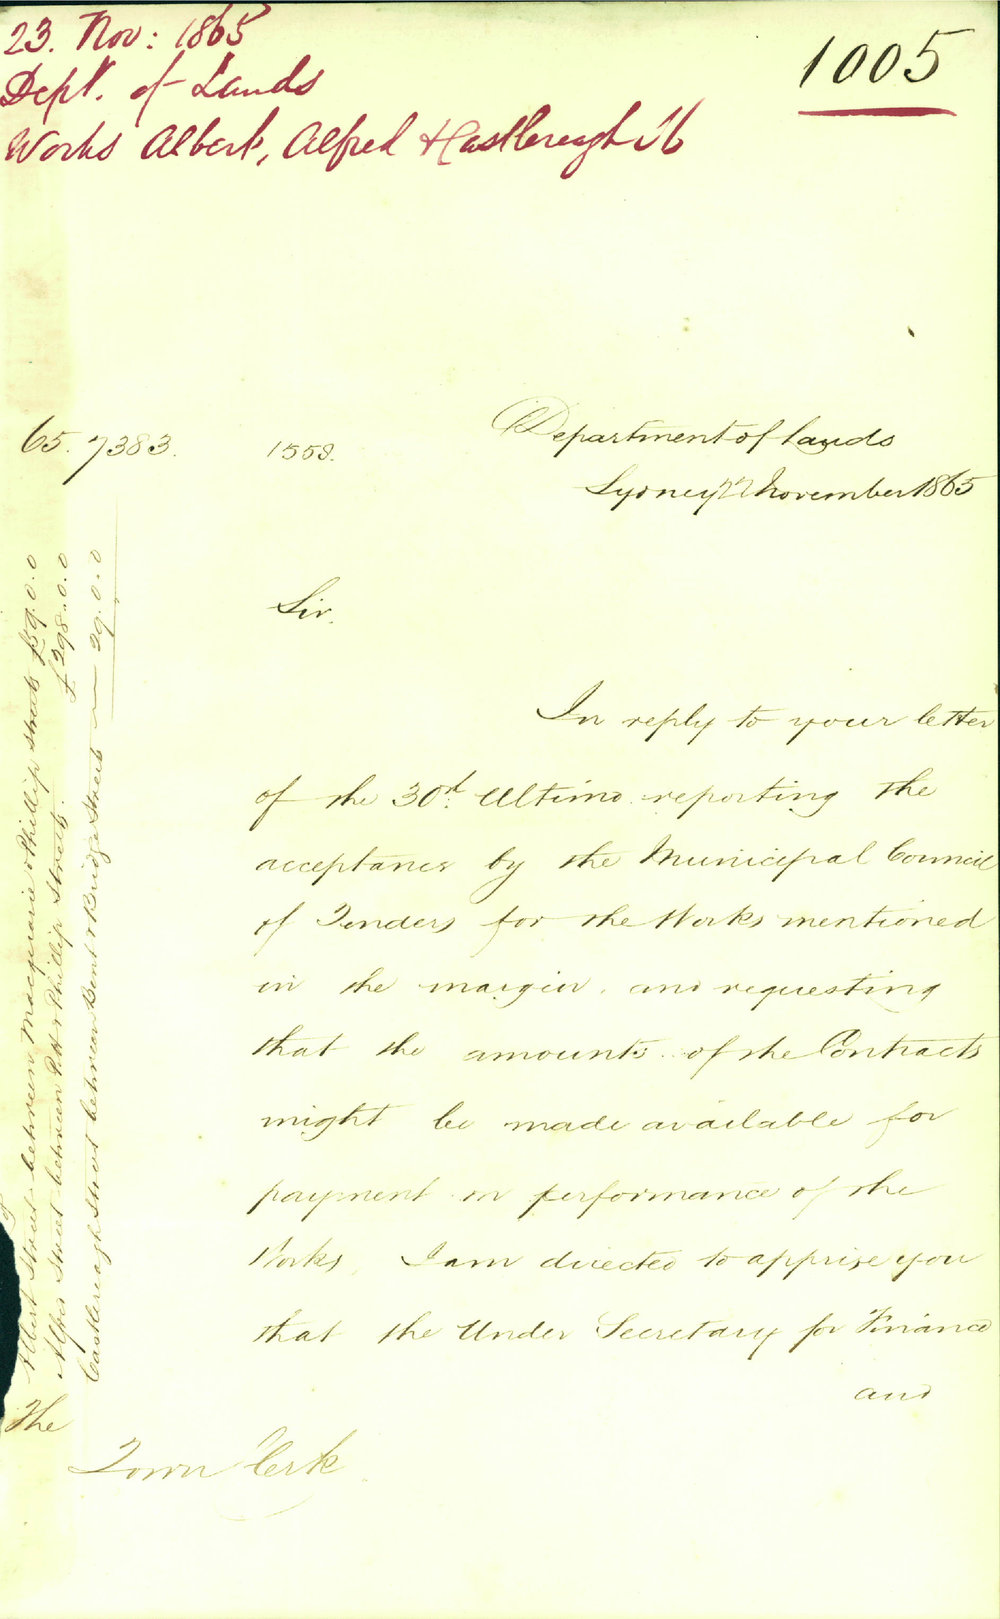 23. Nov: 1865
Dept. of Lands
Works Albert, Alfred & Castlereagh St
1005
65. 7383.
1558.
Department of Lands
Sydney 22 November 1865
Sir.
In reply to your letter
of the 30th. Ultimo reporting the
acceptance by the Municipal Council
of Tenders for the Works mentioned
in the margin. and requesting
that the amounts of the Contracts
might be made available for
payment on performance of the
Works, I am directed to apprise you
that the Under Secretary for Finance
and
Albert Street between Macquarie & Phillip Streets £59.0.0
Street between Pitt & Phillip Streets. £298.0.0
Castlereagh Street between Bent & Bridge Streets — 29.0.0
The
Town Clerk